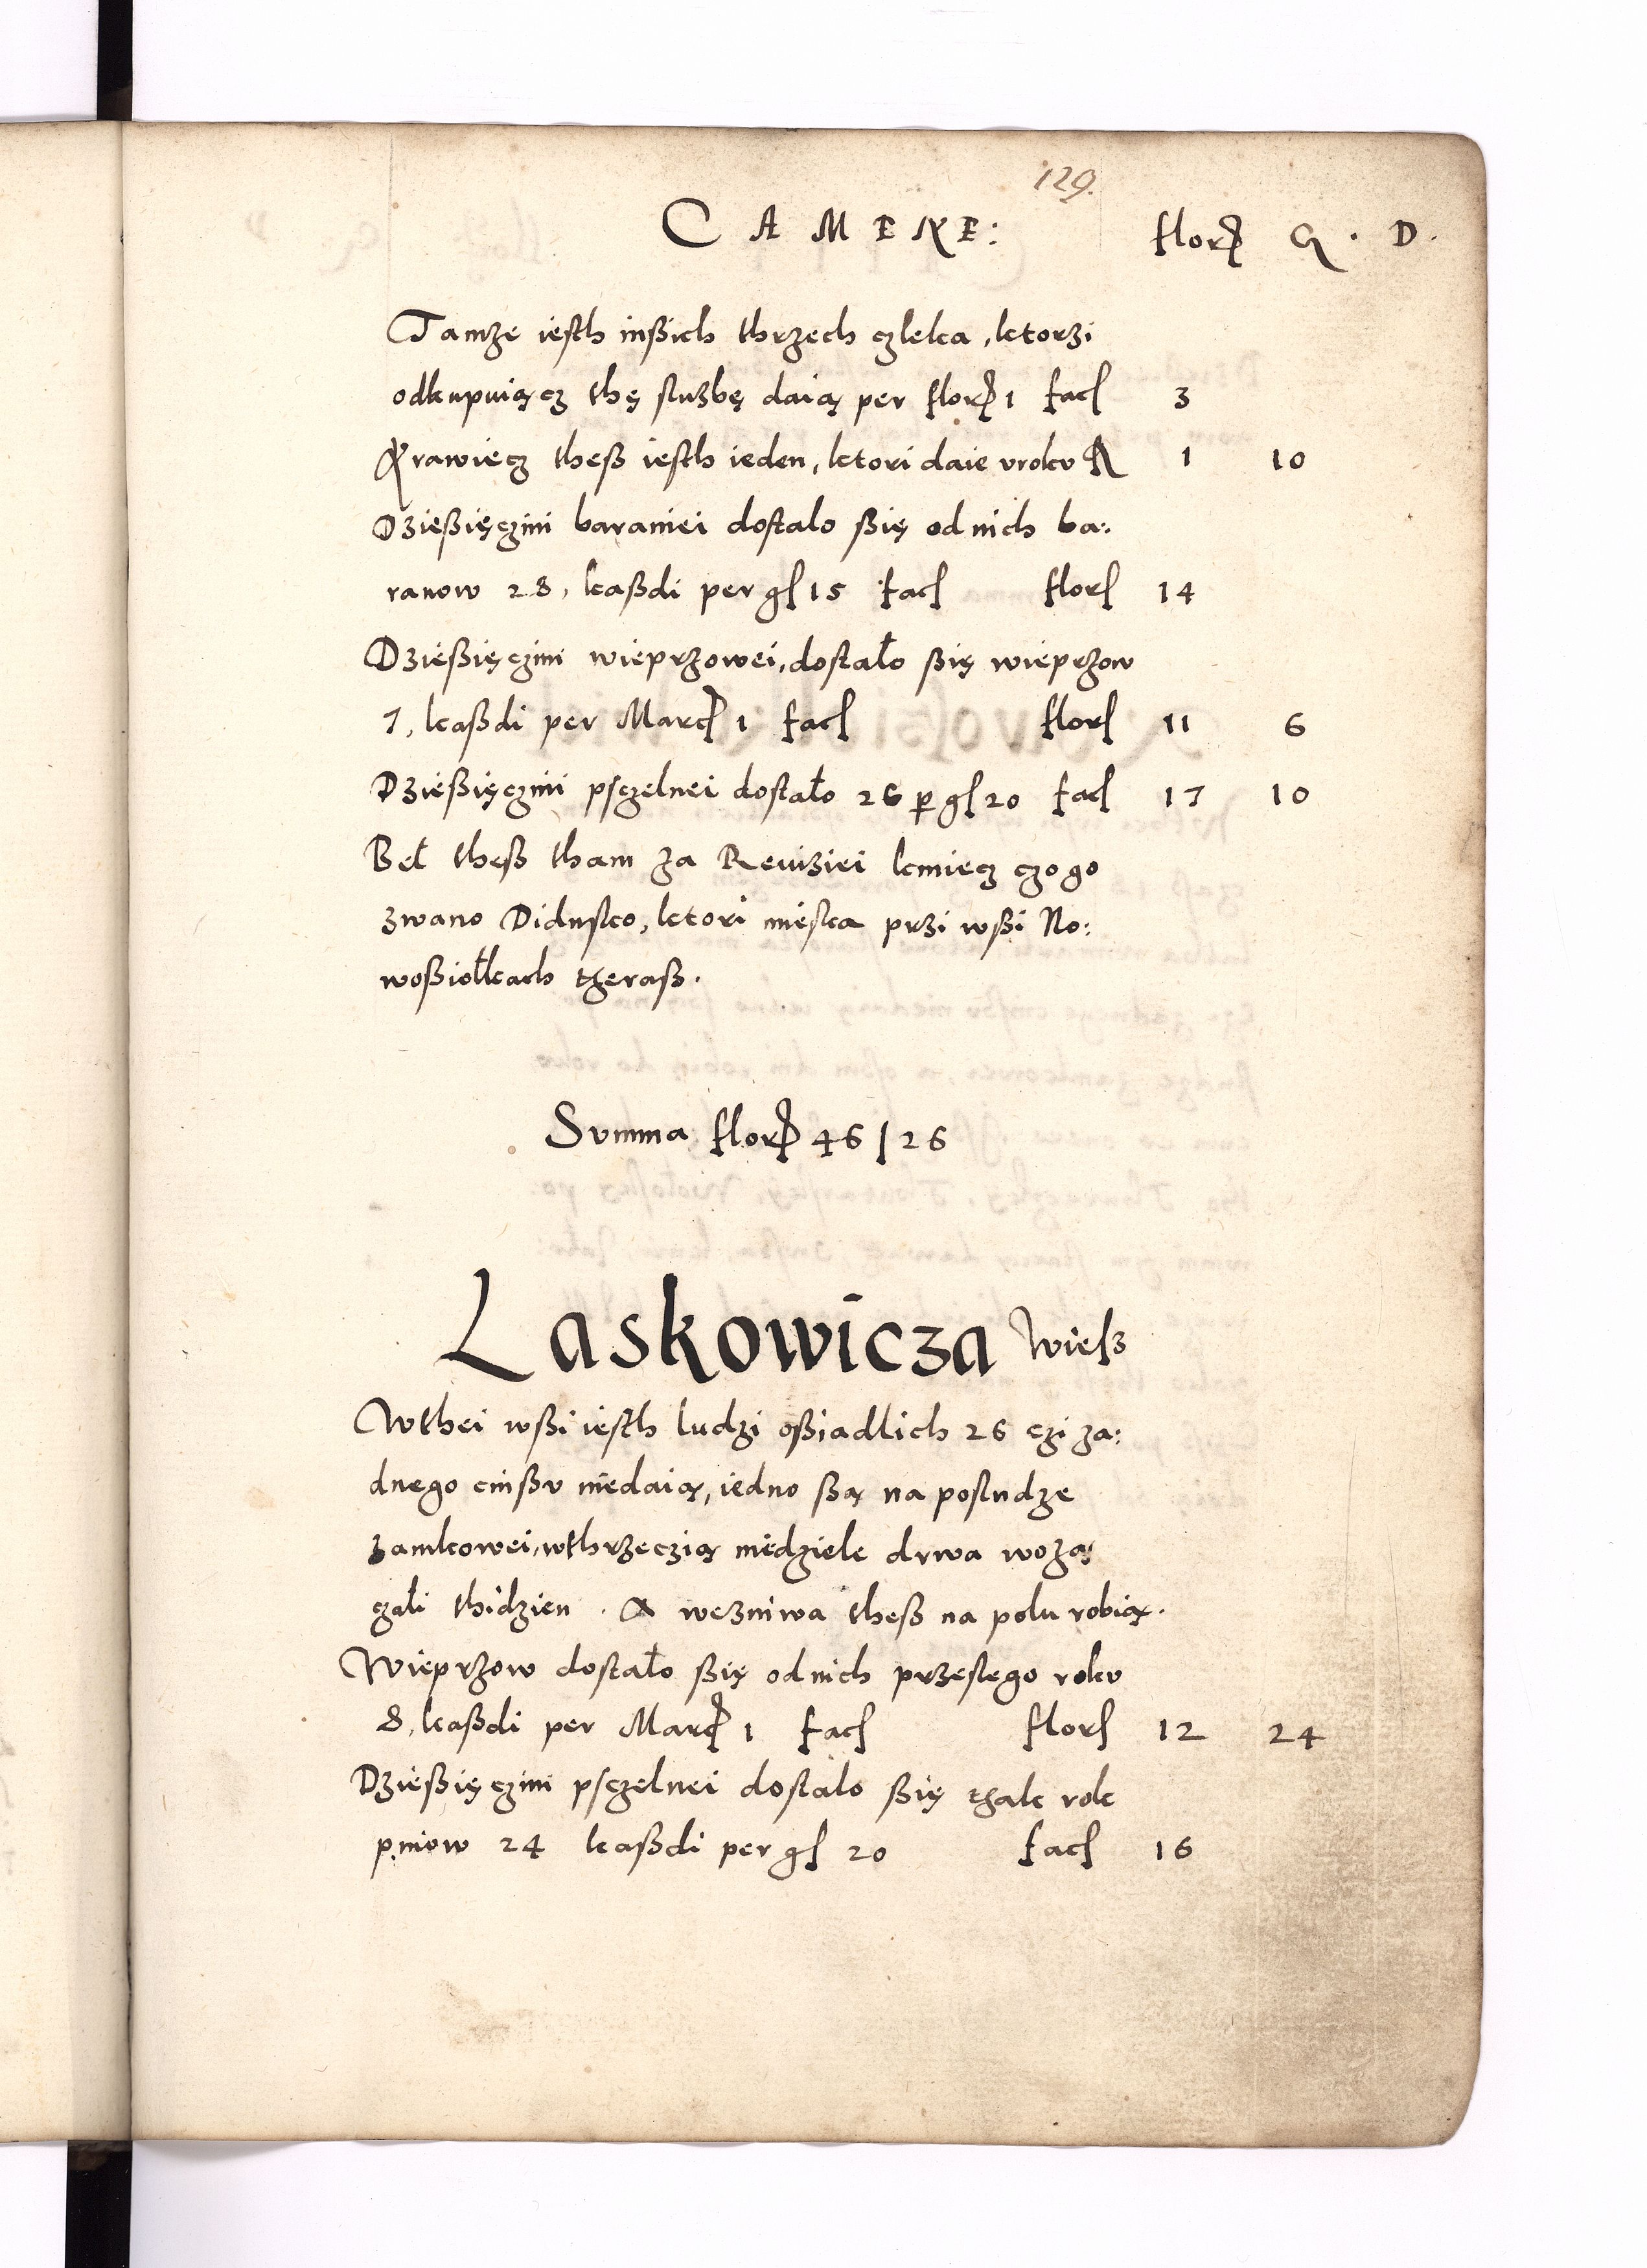 129.
CAMERE: flor G. D.
Tamze iesth inßich thrzech czleka, ktorzi
odkupuiącz thę sluzbę daią per flor 1 fac 3
Krawiecz theß iesth ieden, ktori daie vroku fl 1 10
Dzießięczini baraniei dostalo ßię od nich ba:
ranow 28, kaßdi per gs 15 fac flor 14
Dzießięczini wieprzowei, dostało ßię wieprzow
7, kaßdi per Marc 1 fac flor 11 6
Dzießięczini psczelnei dostało 26 p gs 20 fac 17 10
Beł theß tham za Reuiziei kmiecz czogo
zwano Didusko, ktori mieska przi wßi No:
woßiołkach theraß.
Summa flor 46 / 26
Laskowicza wieß
Wthei wßi iesth ludzi oßiadlich 26 czi za:
dnego cinßu niedaią, iedno ßą na posludze
zamkowei, wthrzeczią niedziele drwa wozą
czali thidzien. A wezniwa theß na polu robią.
Wieprzow dostało ßię od nich przeslego roku
8, kaßdi per Marc 1 fac flor 12 24
Dzießięczini psczelnei dostalo ßię thak rok
pniow 24 kaßdi per gs 20 fac 16